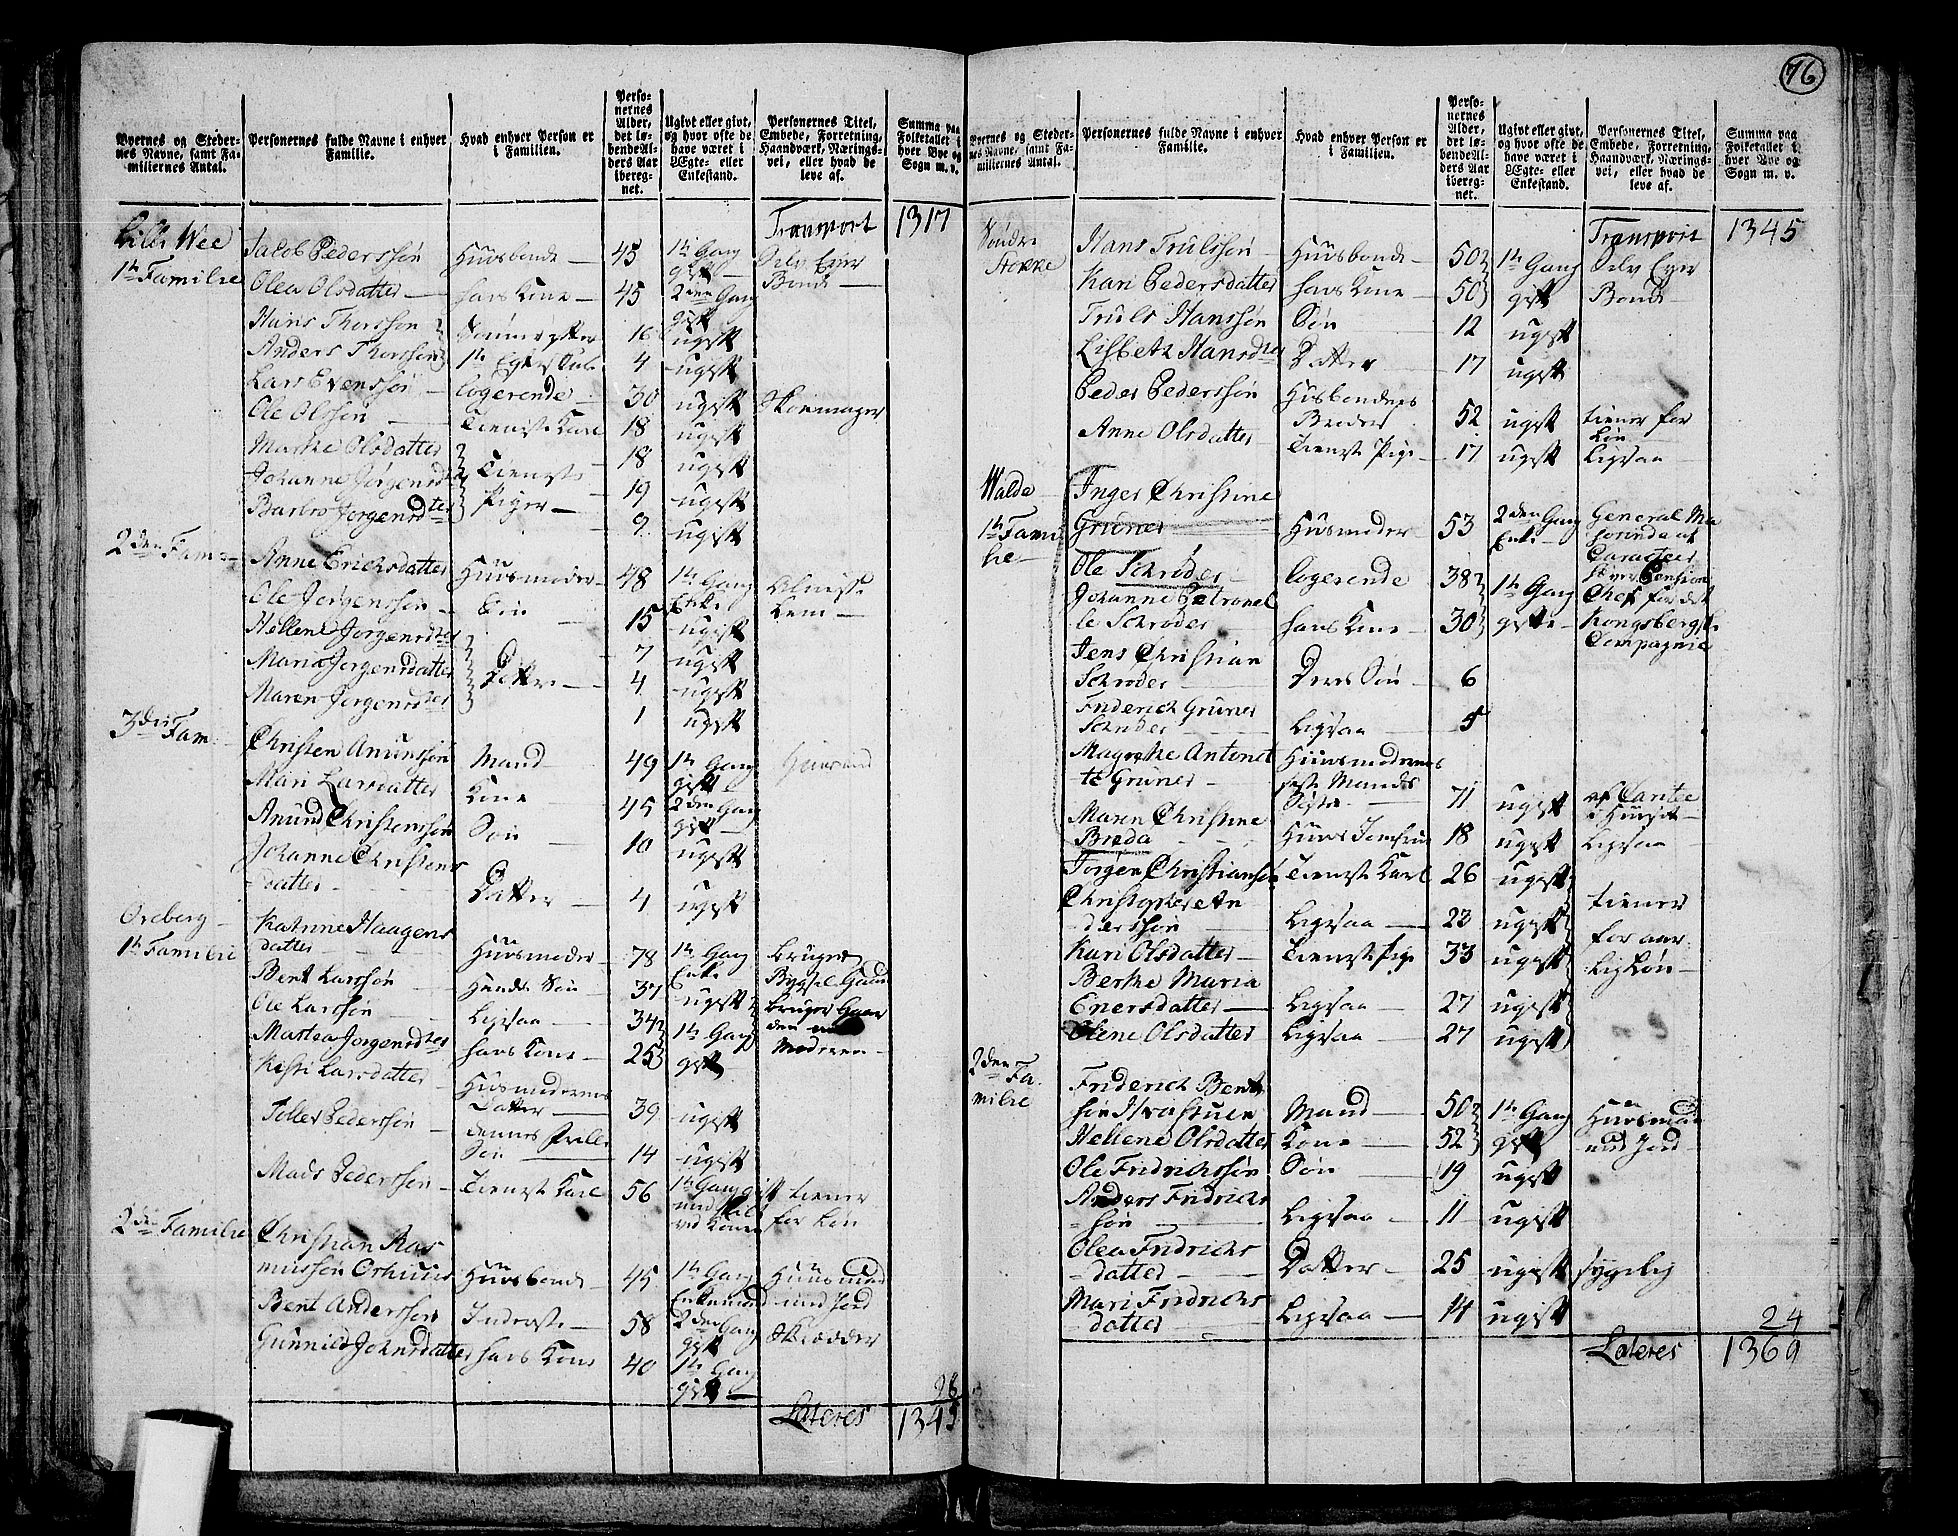 76
Byernes og Steder-
nes Navne, samt Fa-
miliernes Antal.
Personernes fulde Navne i enhver
Familie.
Hvad enhver Person er
i Familien.
Perso-
nernes
Alder,
det lø-
bende Al-
ders Aar
ibereg-
net.
Ugivt eller givt,
og hvor ofte de
have været i
Ægte- eller
Enkestand.
Personernes Titel,
Embede, Forretning,
Haandværk, Nærings-
vei, eller hvad de
leve af.
Summa paa
Folketallet i
hver Bye og
Sogn m. v.
Transport 1317
Lille Wee Jacob Pederssøn Huusbonde 45 1te Gang gift Selv Eyer Bonde
1te Familie Olea Olsdatter hans Kone 45 2den Gang gift
Hans Thorssøn 16 ugift
Anders Thorssøn 4 ugift
Lars Evenssøn Logerende 30 ugift Skoemager
Ole Olssøn Tieniste Karl 18 ugift
Marthe Olsdatter Tieneste 18 ugift
Johanne Jørgensdtr Piger 19 ugift
Barbro Jørgensdter 9 ugift
2den Fam Anne Erichsdatter Huusmoder 48 1te Gang Enke Almisse
Ole Jørgenssøn Søn 15 ugift Lem
Hellene Jorgensdter 7 ugift
Maria Jorgensdatter Døttre 4 ugift
Maren Jorgensdter 1 ugift
3die Fam Christen Anunssøn Mand 49 1te Gang gift Huusmd
Mari Larsdatter Kone 45 2den Gang gift
Anund Christenssøn Søn 10 ugift
Johanne Christens
datter Datter 4 ugift
Oreberg Kathrine Haagens
1te Familie datter Huusmoder 78 1te Gang Enke bruger
Bent Larssøn Hendes Søn 37 ugift Bygsel Gaard
Ole Larssøn Ligesaa 34 1te Gang bruger Gaar
Marthea Jorgensdter hans Kone 25 gift den med Moderen
Kisti Larsdatter Huusmoderens Datter 39 ugift
Tollef Pederssøn dennes Søn 14 ugift
Mads Pederssøn Tieneste Karl 56 1te Gang gift tiener for Løn
2den Familie Christian Ras
mussøn Orhuus Huusbonde 45 1te Gang Enkemand Huusmd med Jord
Bent Anderssøn Inderste 58 2den Gang gift Skrædder
Gunnild Johnsdatter hans Kone 40 1te Gang gift
28
Lateres 1345
Byernes og Steder-
nes Navne, samt Fa-
miliernes Antal.
Personernes fulde Navne i enhver
Familie.
Hvad enhver Person er
i Familien.
Perso-
nernes
Alder,
det lø-
bende Al-
ders Aar
ibereg-
net.
Ugivt eller givt,
og hvor ofte de
have været i
Ægte- eller
Enkestand.
Personernes Titel,
Embede, Forretning,
Haandværk, Nærings-
vei, eller hvad de
leve af.
Summa paa
Folketallet i
hver Bye og
Sogn m. v.
Transport 1345
Søndre Hans Trulssøn Huusbonde 50 1te Gang Selv Eyer
Stokke Kari Pedersdatter hans Kone 50 gift Bonde
Truls Hanssøn Søn 12 ugift
Lisbeth Hansdter Datter 17 ugift
Peder Pederssøn Husbondens Broder 52 ugift tiener for Løn
Anne Olsdatter Tieneste Pige 17 ugift Ligesaa
Walde Inger Christine
1te Fami Gruner Huusmoder 53 2den Gang Enke General Ma
lie Ole Schrøder Logerende 38 1te Gang
Johanne Petronel
le Schrøder hans Kone 30 gifte Chef for det Kongsbergske Compagnie
Jens Christian
Schrøder Deres Søn 6
Friderich Gruner
Schrøder Ligesaa 5
Magrethe Antonet Huusmoderens
te Gruner første Mands Søster 71 ugift
Maren Christine
Breda Huus Jomfrue 18 ugift Ligesaa
Jorgen Christianssøn Tieneste Karl 26 ugift tiener
Christopher An
derssøn Ligesaa 23 ugift for aar
Kari Olsdatter Tieneste Pige 33 ugift lig Løn
Berthe Maria
Enersdatter Ligesaa 27 ugift
Olene Olsdatter Ligesaa 27 ugift
2den Fa
milie Friderich Bent
søn Mand 50 1te Gang Huusmand
Hellene Olsdatter Kone 52 gift med Jord
Ole Fridrichssøn Søn 19 ugift
Anders Fridrichs
søn Ligesaa 11 ugift
Olea Fridrichs
datter Datter 25 ugift sygelig
Mari Fridrichs
datter Ligesaa 14 ugift
24
Lateres 1369